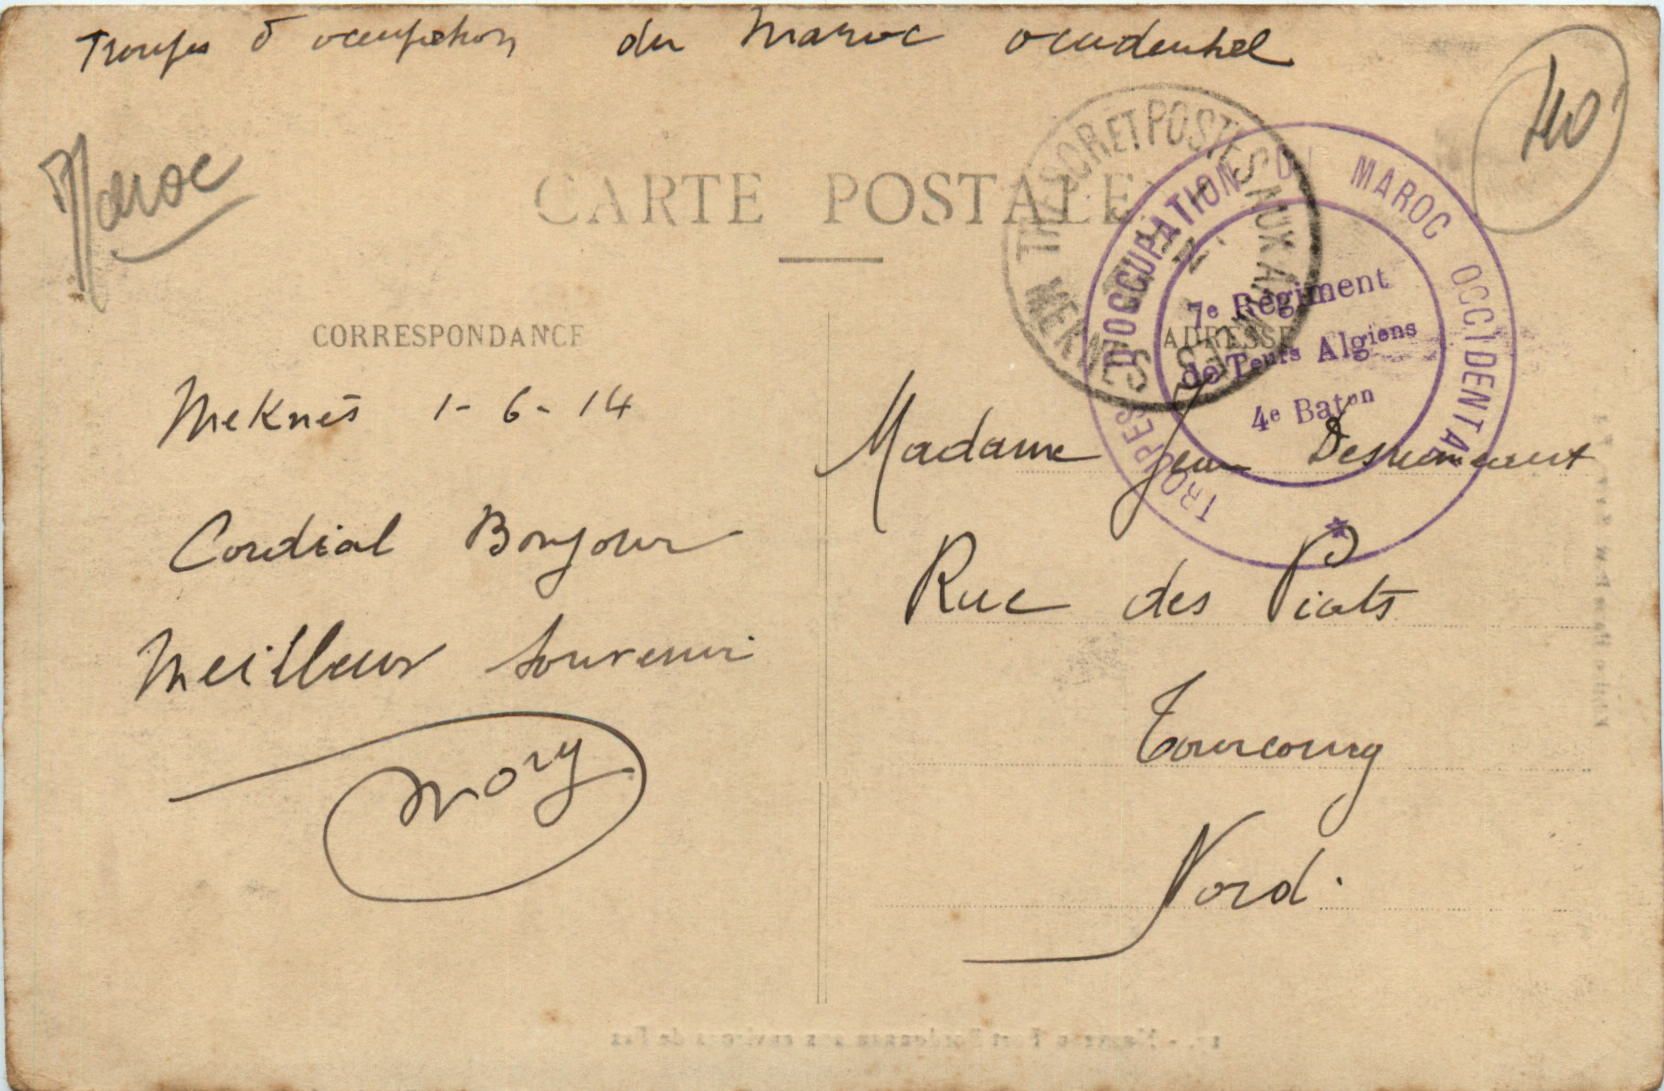 Troupes d'occupation du Maroc occidental
Maroc
CARTE POSTALE
TRESOR ET POSTES AUX ARMEES
MEKNES
TROUPES D'OCCUPATION DU MAROC OCCIDENTAL
7e Régiment
de Teurs Algiens
4e Baton
CORRESPONDANCE
ADRESSE
Meknès 1-6-14
Cordial Bonjour
Meilleur souvenir
Mory
Madame Jean
Rue des Piats
Tourcoing
Nord.